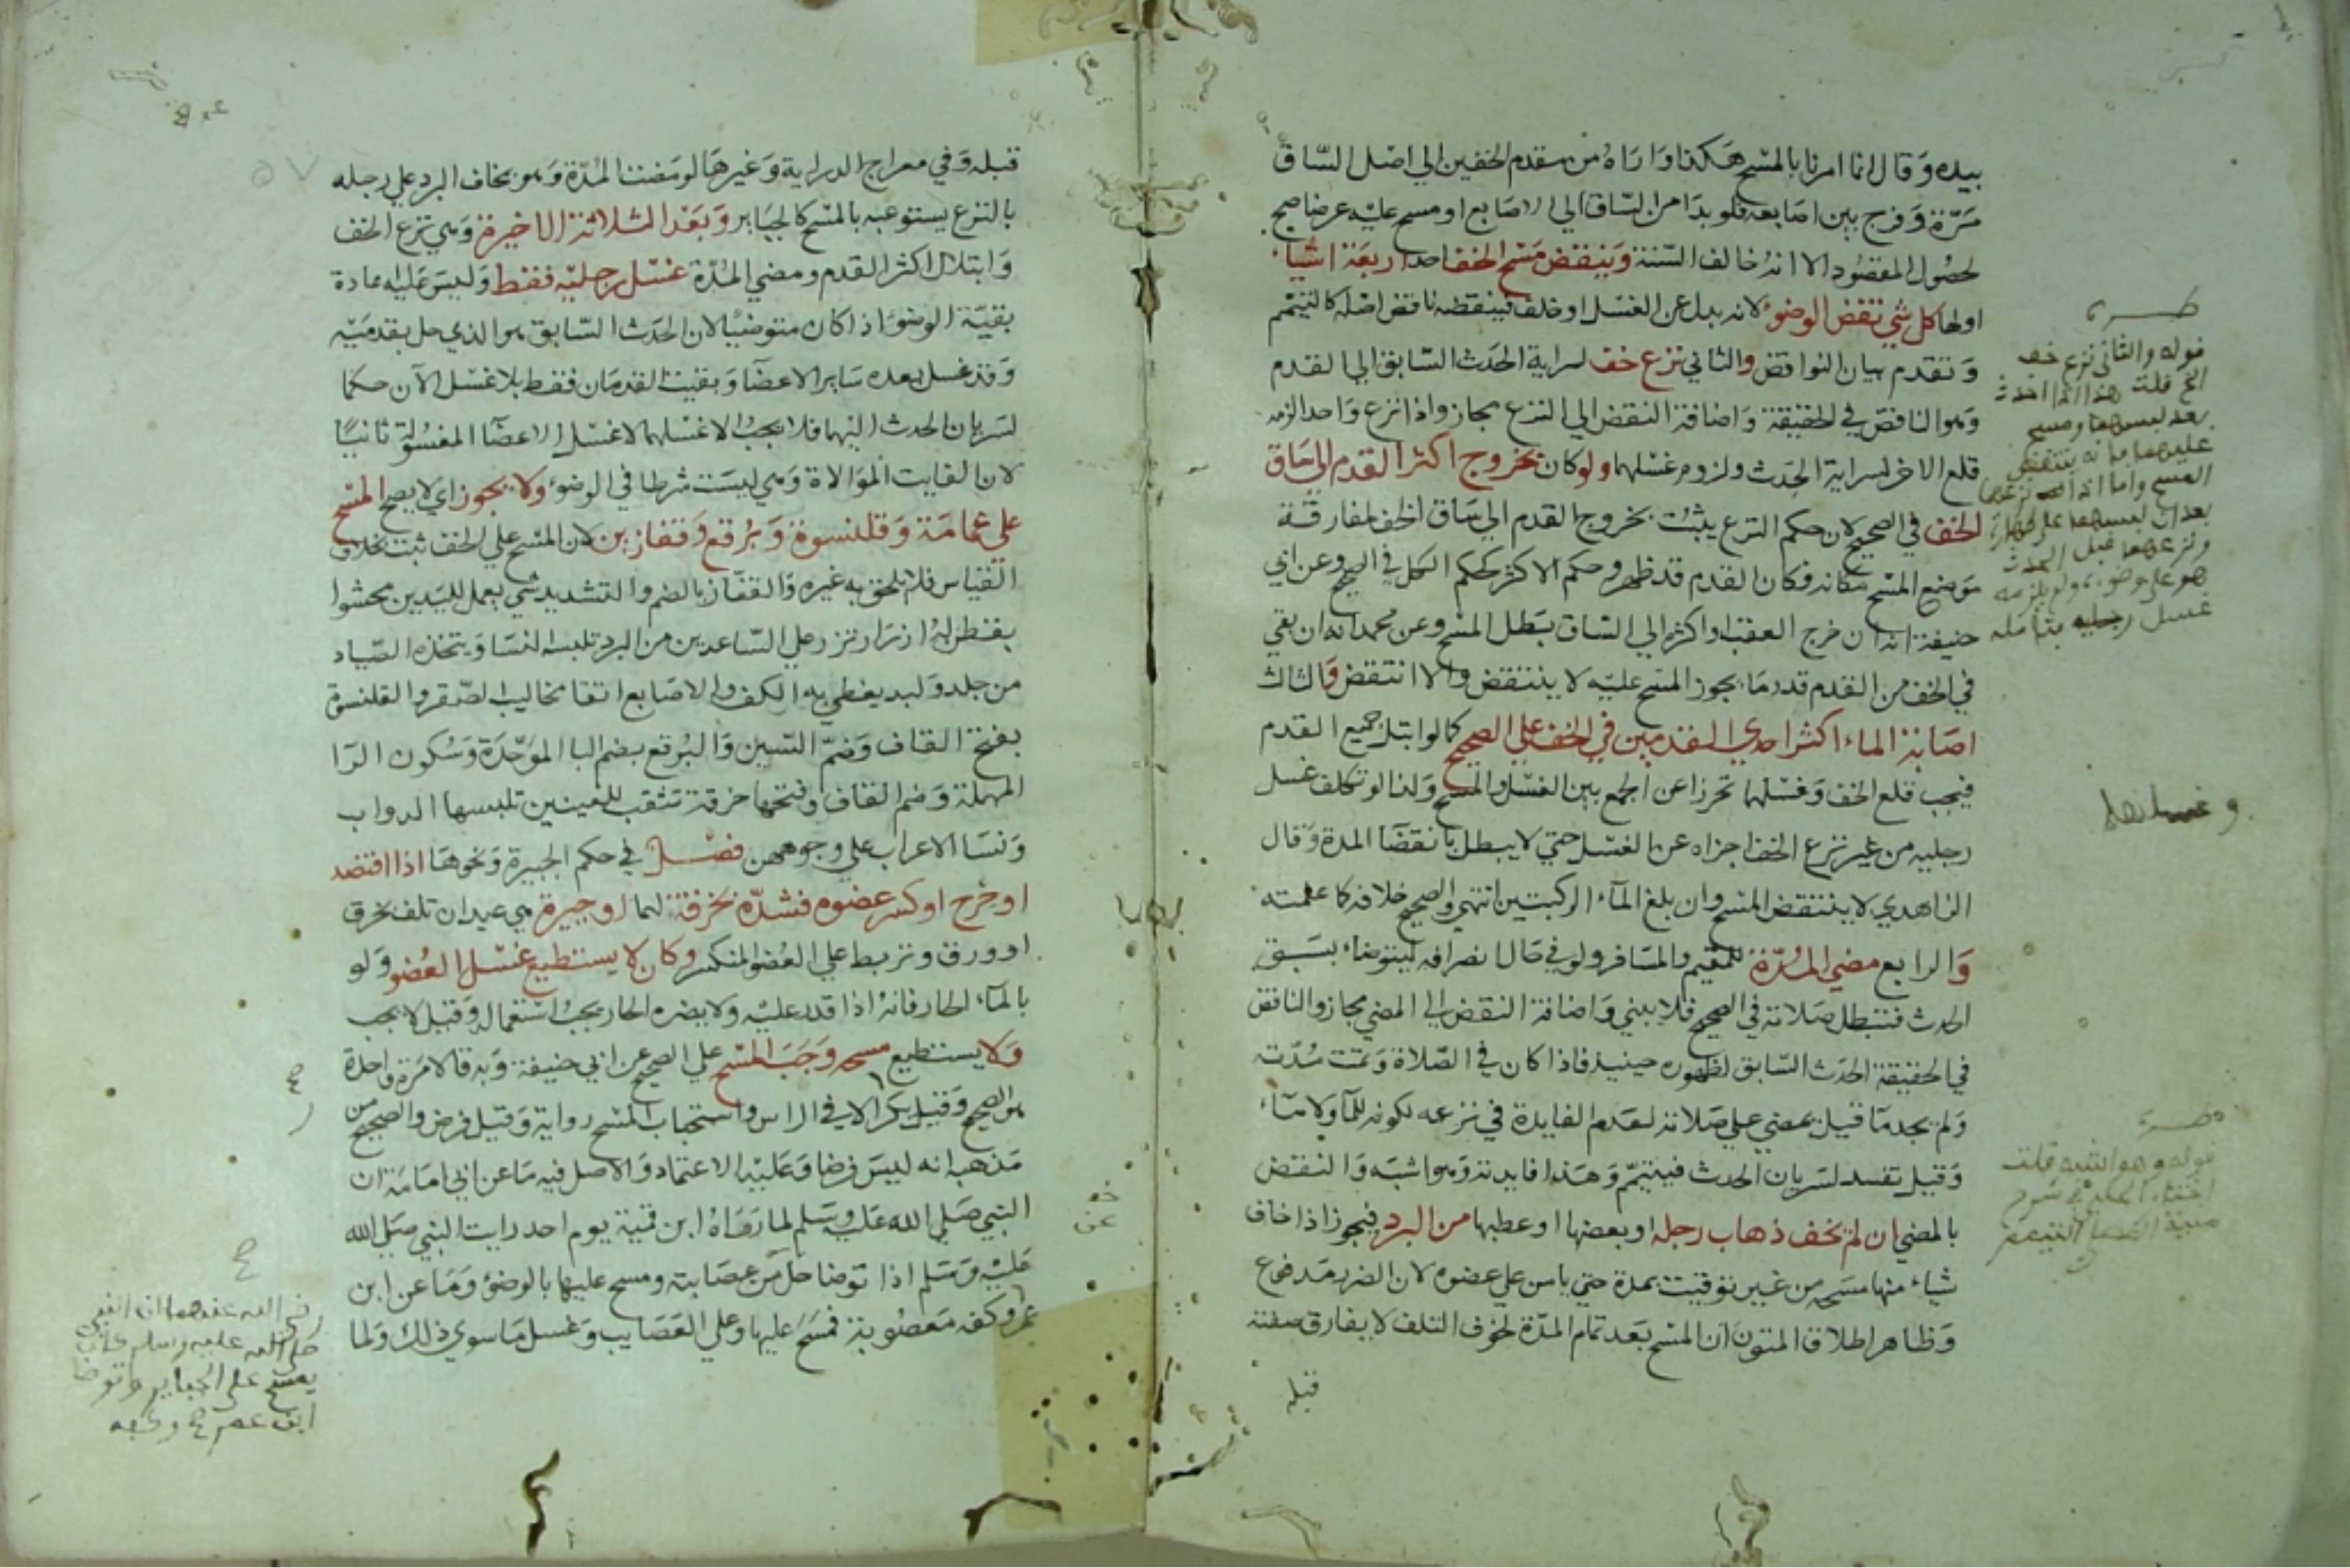 بيده وقال انما امرنا بالمسح هكذا واراه من مقدم الخفين الي اصل الساق
مرة وفرج بين اصابعه فلو بدا من الساق الي الاصابع او مسح عليه عرضا صح
لحصول المقصود الا انه خالف السنة وينقض مسح الخف احد اربعة اشياء
اولها كل شي نقض الوضوء لانه بدل عن الغسل او خلف فينقضه ناقض اصله كالتيمم
وتقدم بيان النواقض والثاني نزع خف لسراية الحدث السابق الي القدم
وهو الناقض في الحقيقة واضافة النقض الي النزع مجاز واذا نزع واحد الزمه
قلع الاخر لسراية الحدث ولزوم غسلهما ولو كان بخروج اكثر القدم الي ساق
الخف في الصحيح لان حكم النزع يثبت بخروج القدم الي ساق الخف لمفارقة
موضع المسح مكانه فكان القدم قد ظهر وحكم الاكثر كحكم الكل في الصحيح وعن ابي
حنيفة انه ان خرج العقب او اكثره الي الساق بطل المسح وعن محمد انه ان بقي
في الخف من القدم قدر ما يجوز المسح عليه لا ينتقض والا انتقض والثالث
اصابة الماء اكثر احدي القدمين في الخف علي الصحيح كما لو ابتل جميع القدم
فيجب قلع الخف وغسلهما تحرزا عن الجمع بين الغسل والمسح ولذا لو تكلف غسل
رجليه من غير نزع الخف اجزاه عن الغسل حتي لا يبطل بانقضا المدة وقال
الزاهدي لا ينتقض المسح وان بلغ الماء الركبتين انتهي والصحيح خلافه كما علمته
والرابع مضي المدة للمقيم والمسافر ولو في حال انصرافه ليتوضاء بسبق
الحدث فتبطل صلاته في الصحيح فلا يبني واضافة النقض الي المضي مجاز والناقض
في الحقيقة الحدث السابق لظهوره حينيذ فاذا كان في الصلاة وتمت مدته
ولم يجد ما قيل يمضي علي صلاته لعدم الفايدة في نزعه لكونه للما ولا ماء
وقيل تفسد لسريان الحدث فيتيمم وهذا فايدته وهو اشبه والنقض
بالمضي ان لم يخف ذهاب رجله او بعضها او عطبها من البرد فيجوز اذا خاف
شياء منها مسحه من غير توقيت بمدة حتي يامن علي عضوه لان الضرر مدفوع
وظاهر اطلاق المتون ان المسح بعد تمام المدة لخوف التلف لا يفارق صفته
قبله
قوله والثاني نزع خف
الخ قلت هذا اذا احدث
بعد لبسهما ومسح
عليهما فانه ينتقض
المسح واما اذا نزعهما
بعد ان لبسهما علي طهارة
ونزعهما قبل الحدث
هو علي وضوءه ولم يلزمه
غسل رجليه بتامله
وغسلهما
قوله وهو اشبه قلت
في شرح
منية المصلي
قبله وفي معراج الدراية وغيرها لو مضت المدة وهو يخاف البرد علي رجله
بالنزع يستوعبه بالمسح كالجباير وبعد الثلاثة الاخيرة وهي نزع الخف
وابتلال اكثر القدم ومضي المدة غسل رجليه فقط وليس عليه عادة
بقية الوضوء اذا كان متوضيا لان الحدث السابق هو الذي حل بقدميه
وقد غسل بعده ساير الاعضا وبقيت القدمان فقط بلا غسل الآن حكما
لسريان الحدث اليهما فلا يجب الا غسلهما لا غسل الاعضا المغسولة ثانيا
لان الفايت الموالاة وهي ليست شرطا في الوضوء ولا يجوز اي لا يصح المسح
علي عمامة وقلنسوة وبرقع وقفازين لان المسح علي الخف ثبت بخلاف
القياس فلا يلحق به غيره والقفاز بالضم والتشديد شي يعمل لليدين محشوا
بقطن له ازرار تزر علي الساعدين من البرد تلبسه النسا ويتخذه الصياد
من جلد ولبد يغطي به الكف والاصابع اتقا مخاليب الصقر والقلنسوة
بفتح القاف وضم السين والبرقع بضم البا الموحدة وسكون الرا
المهملة وضم القاف وفتحها خرقة تثقب للعينين تلبسها الدواب
ونسا الاعراب علي وجوههن فصل في حكم الجبيرة ونحوها اذا افتصد
او جرح او كسر عضوه فشده بخرقة او جبيرة هي عيدان تلف بخرق
او ورق وتربط علي العضو المنكسر وكان لا يستطيع غسل العضو ولو
بالماء الحار فانه اذا قدر عليه ولا يضره الحار يجب استعماله وقيل لا يجب
ولا يستطيع مسحه وجب المسح علي الصحيح عن ابي حنيفة وبه قالا مرة واحدة
هو الصحيح وقيل يكرر الا في الراس واستحباب المسح رواية وقيل فرض والصحيح من
مذهبه انه ليس فرضا وعليه الاعتماد والاصل فيه ما عن ابي امامة ان
النبي صلي الله عليه وسلم لما رماه ابن قمية يوم احد رايت النبي صلي الله
عليه وسلم اذا توضا حل عن عصابته ومسح عليها بالوضوء وما عن ابن
عمر وكفه معصوبة فمسح عليها وعلي العصايب وغسل ما سوي ذلك ولما
رضي الله عنهما ان النبي
صلي الله عليه وسلم كان
يمسح علي الجباير وتوضا
ابن عمر صح وكفه